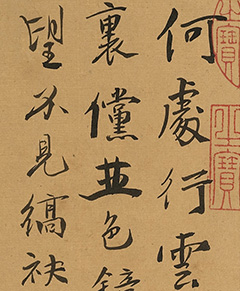 何處行雲
裏儻並色
望不見縞袂